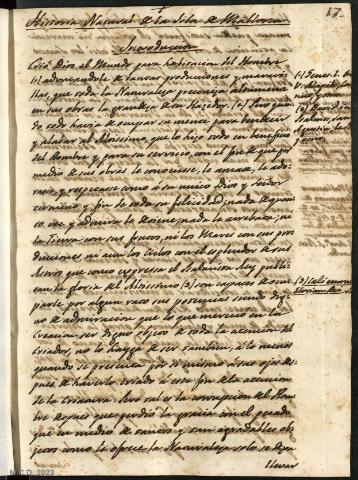 17.
Historia Natural de la Isla de Mallorca
Introduccion
Crió Dios el Mundo para habitacion del Hombre
(1) adornandole de tantas producciones y maravi-
llas, que toda la Naturaleza pregona altamente
en sus obras la grandeza de su Hazedor. (2) Pero quan-
do todo havia de ocupar su mente para bendecir
y alabar al Altissimo que lo hizo todo en beneficio
del Hombre y para su servicio, con el fin de que por
medio de sus obras le conociesse, le amase, le ado-
rase, y respetasse como à su unico Dios y Señor
y fin de toda su felicidad; nada de quanto
ve, y admira le mueve; nada le arrebata; ni
la Tierra con sus frutos, ni los Mares con sus pro-
ducciones, ni aun los Cielos con el esplendor de sus
Astros que como expressa el Psalmista Rey publi-
can la gloria del Altissimo (3) son capaces de ocu-
parle por algun rato sus potencias siendo dig-
no de admiracion que lo que mereció en la
Creacion ser digno objeto de toda la atencion del
Criador, no lo haya de ser tambien, à lo menos
quando se presenta por si mismo à sus ojos des-
pues de haverlo criado à este fin de la atencion
de la Criatura. Pero tal es la corrupcion del Hom-
bre despues que perdió la gracia con el pecado
que en medio de tantos y tan agradables ob-
jetos como le ofrece la Naturaleza solo se dexa
llevar
(1) Genes. 1.
(2) David in
Psalmis, San
Agustin
(3) Celi enarrant
gloriam Dei
M.C.D. 2022